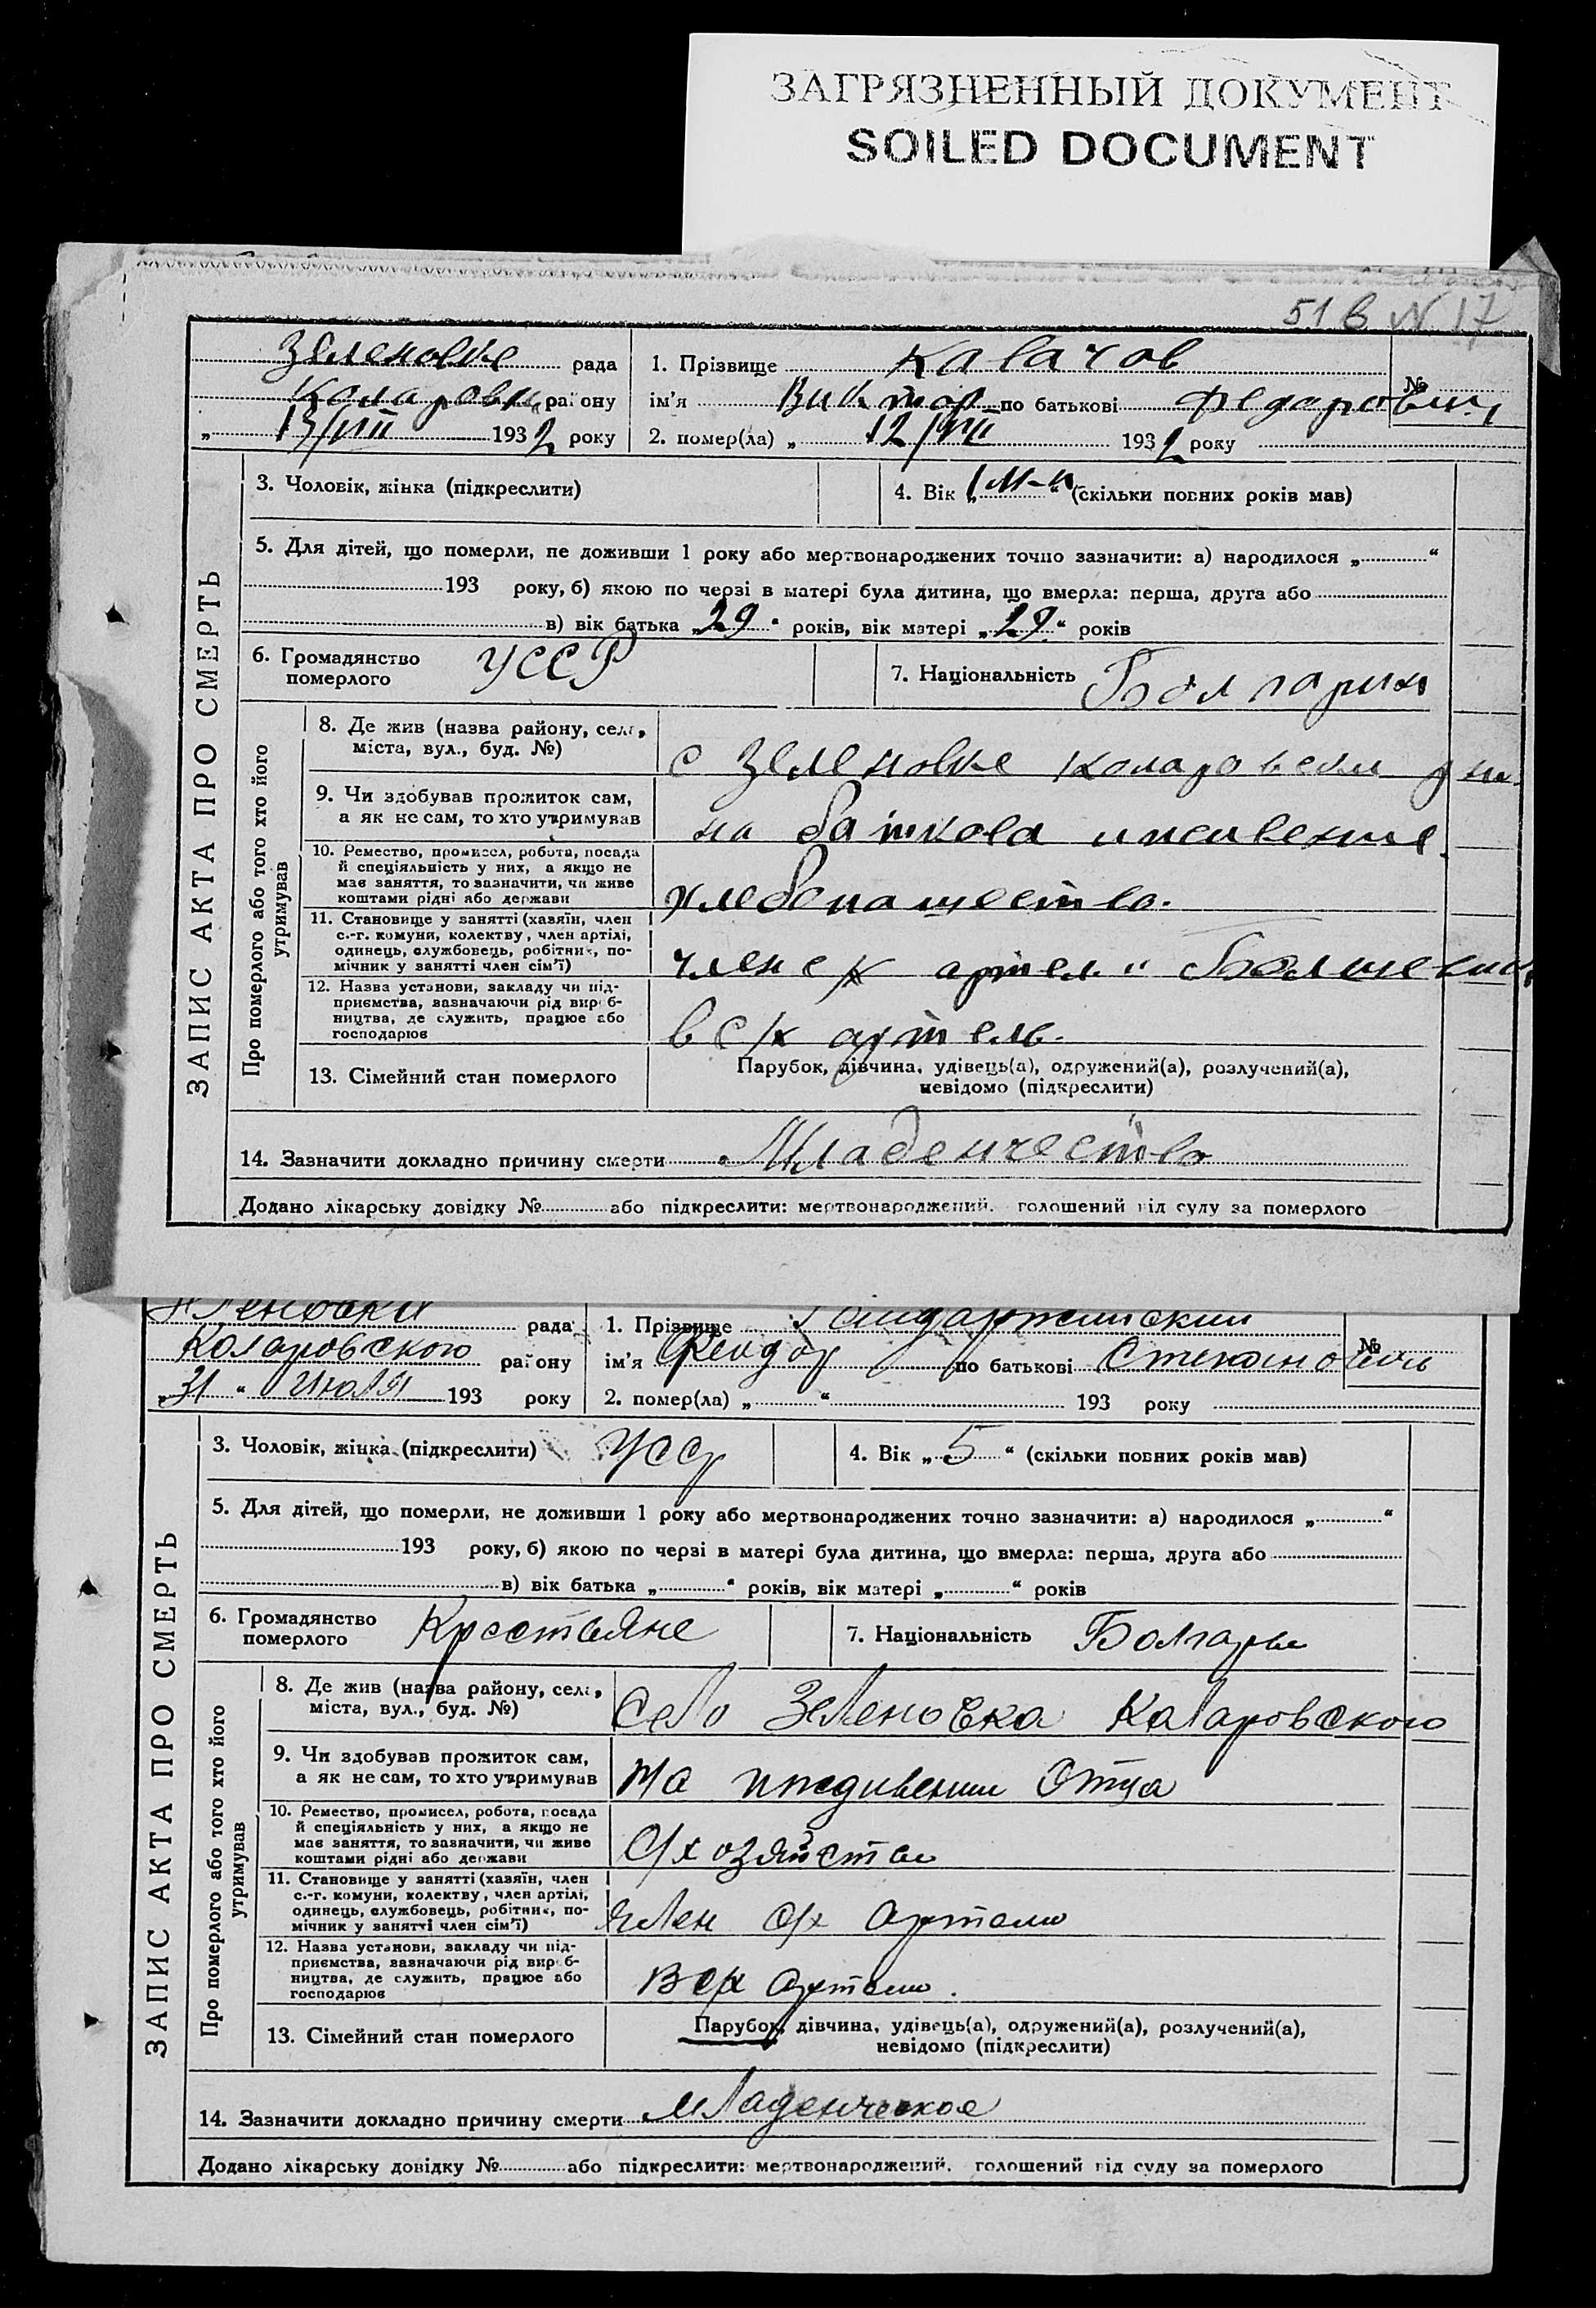 ЗАГРЯЗНЕННЫЙ ДОКУМЕНТ
SOILED DOCUMENT
51 в N 17
ЗАПИС АКТА ПРО СМЕРТЬ
Зеленовке рада
району
„ 13/VIII 1932 року
1. Прізвище Кавачов
№
ім'я Виктор по батькові Федарович
2. помер(ла) „ 12/VIII 1932 року
3. Чоловік, жінка (підкреслити)
4. Вік „ 1 м-ц “ (скільки повних років мав)
5. Для дітей, що померли, не доживши 1 року або мертвонароджених точно зазначити: а) народилося „ “
193 року, б) якою по черзі в матері була дитина, що вмерла: перша, друга або
в) вік батька „29“ років, вік матері „29“ років
6. Громадянство померлого УССР
7. Національність Болгарин
Про померлого або того хто його утримував
8. Де жив (назва району, села, міста, вул., буд. №)
с Зеленовке
9. Чи здобував прожиток сам, а як не сам, то хто утримував
на
10. Ремество, промисел, робота, посада й спеціяльність у них, а якщо не має заняття, то зазначити, чи живе коштами рідні або держави
хлебопашество.
11. Становище у занятті (хазяїн, член с.-г. комуни, колективу, член артілі, одинець, службовець, робітник, помічник у занятті член сім'ї)
член с/х артел. „
12. Назва установи, закладу чи підприємства, зазначаючи рід виробництва, де служить, працює або господарює
в с/х артель.
13. Сімейний стан померлого
Парубок, дівчина, удівець(а), одружений(а), розлучений(а),
невідомо (підкреслити)
14. Зазначити докладно причину смерти Младенчество
Додано лікарську довідку № або підкреслити: мертвонароджений, голошений від суду за померлого
ЗАПИС АКТА ПРО СМЕРТЬ
рада
Коларовского району
„31“ Июля 193 року
1. Прізвище
№
ім'я Феидор по батькові
2. помер(ла) „ “ 193 року
3. Чоловік, жінка (підкреслити) Усср
4. Вік „5“ (скільки повних років мав)
5. Для дітей, що померли, не доживши 1 року або мертвонароджених точно зазначити: а) народилося „ “
193 року, б) якою по черзі в матері була дитина, що вмерла: перша, друга або
в) вік батька „ “ років, вік матері „ “ років
6. Громадянство померлого Крестьяне
7. Національність Болгары
Про померлого або того хто його утримував
8. Де жив (назва району, села, міста, вул., буд. №)
Село Зеленовка Коларовского
9. Чи здобував прожиток сам, а як не сам, то хто утримував
На Отца
10. Ремество, промисел, робота, посада й спеціяльність у них, а якщо не має заняття, то зазначити, чи живе коштами рідні або держави
С/х озяйства
11. Становище у занятті (хазяїн, член с.-г. комуни, колективу, член артілі, одинець, службовець, робітник, помічник у занятті член сім'ї)
член с/х Артели
12. Назва установи, закладу чи підприємства, зазначаючи рід виробництва, де служить, працює або господарює
В с/х Артели.
13. Сімейний стан померлого
Парубок, дівчина, удівець(а), одружений(а), розлучений(а),
невідомо (підкреслити)
14. Зазначити докладно причину смерти младенческое
Додано лікарську довідку № або підкреслити: мертвонароджений, голошений від суду за померлого